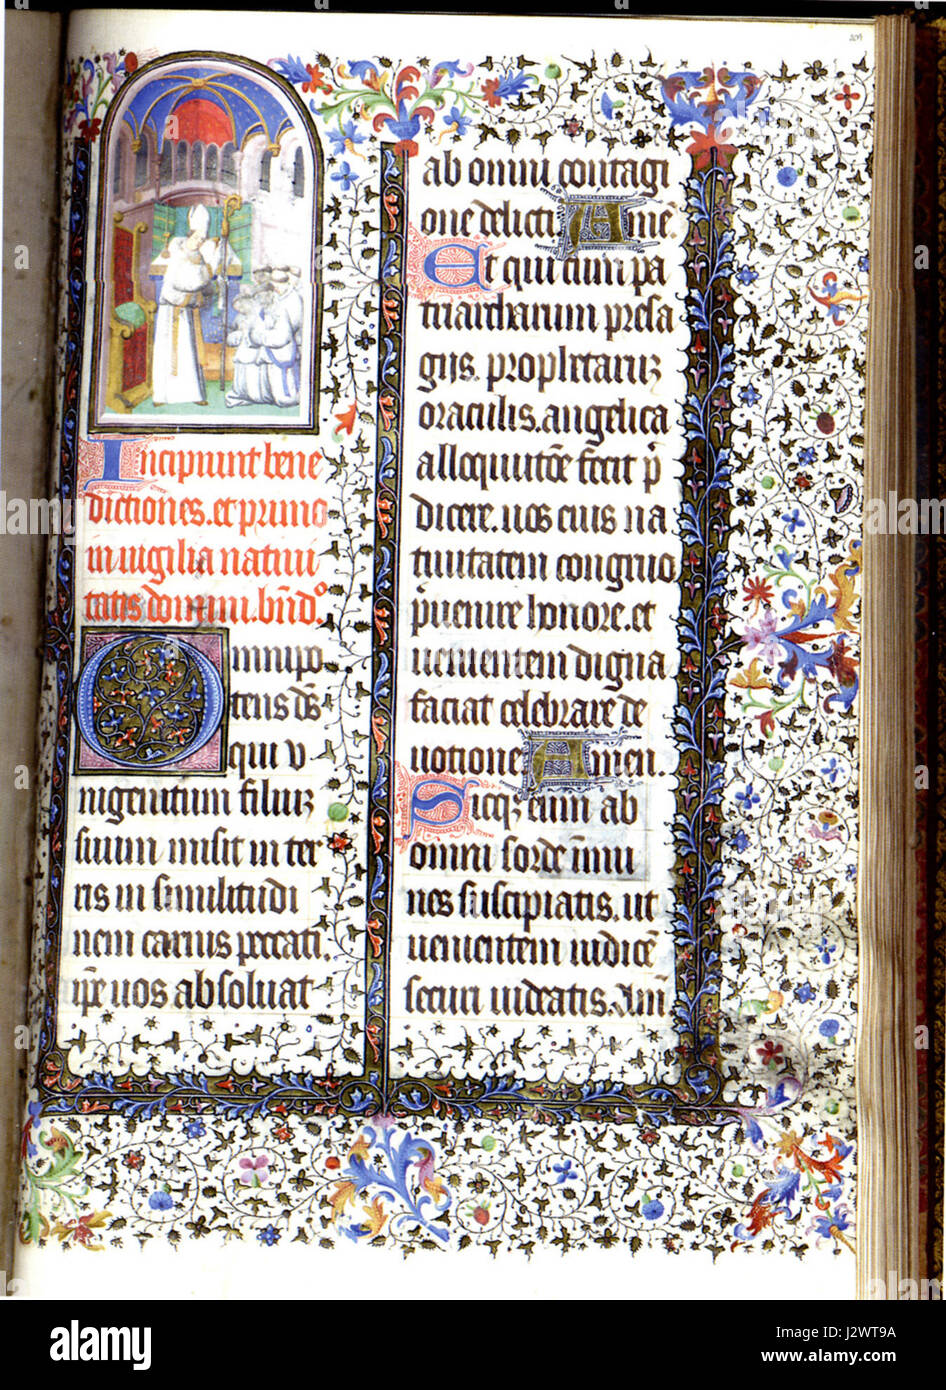 204
Incipiunt bene
dictiones. et primo
in vigilia nativi
tatis domini. bn̄do.
Omnipo
tens ds̄
qui v
nigenitum filiuꝫ
suum misit in ter
ris in similitudi
nem carnis peccati.
ip̄e vos absoluat
ab omni contagi
one delicti Amē.
Et qui eum pa
triarcharum presa
giis. prophetaruꝫ
oraculis. angelica
alloquutōe fecit p̄
dicere. uos eius na
tiuitatem congruo
p̄uenire honore. et
uenientem digna
faciat celebrare de
uotione Amen.
Sicqꝫ eum ab
omni sorde īmu
nes suscipiatis. ut
uenientem iudicē
securi uideatis. Am̄.
alamy
Image ID: J2WT9A
www.alamy.com